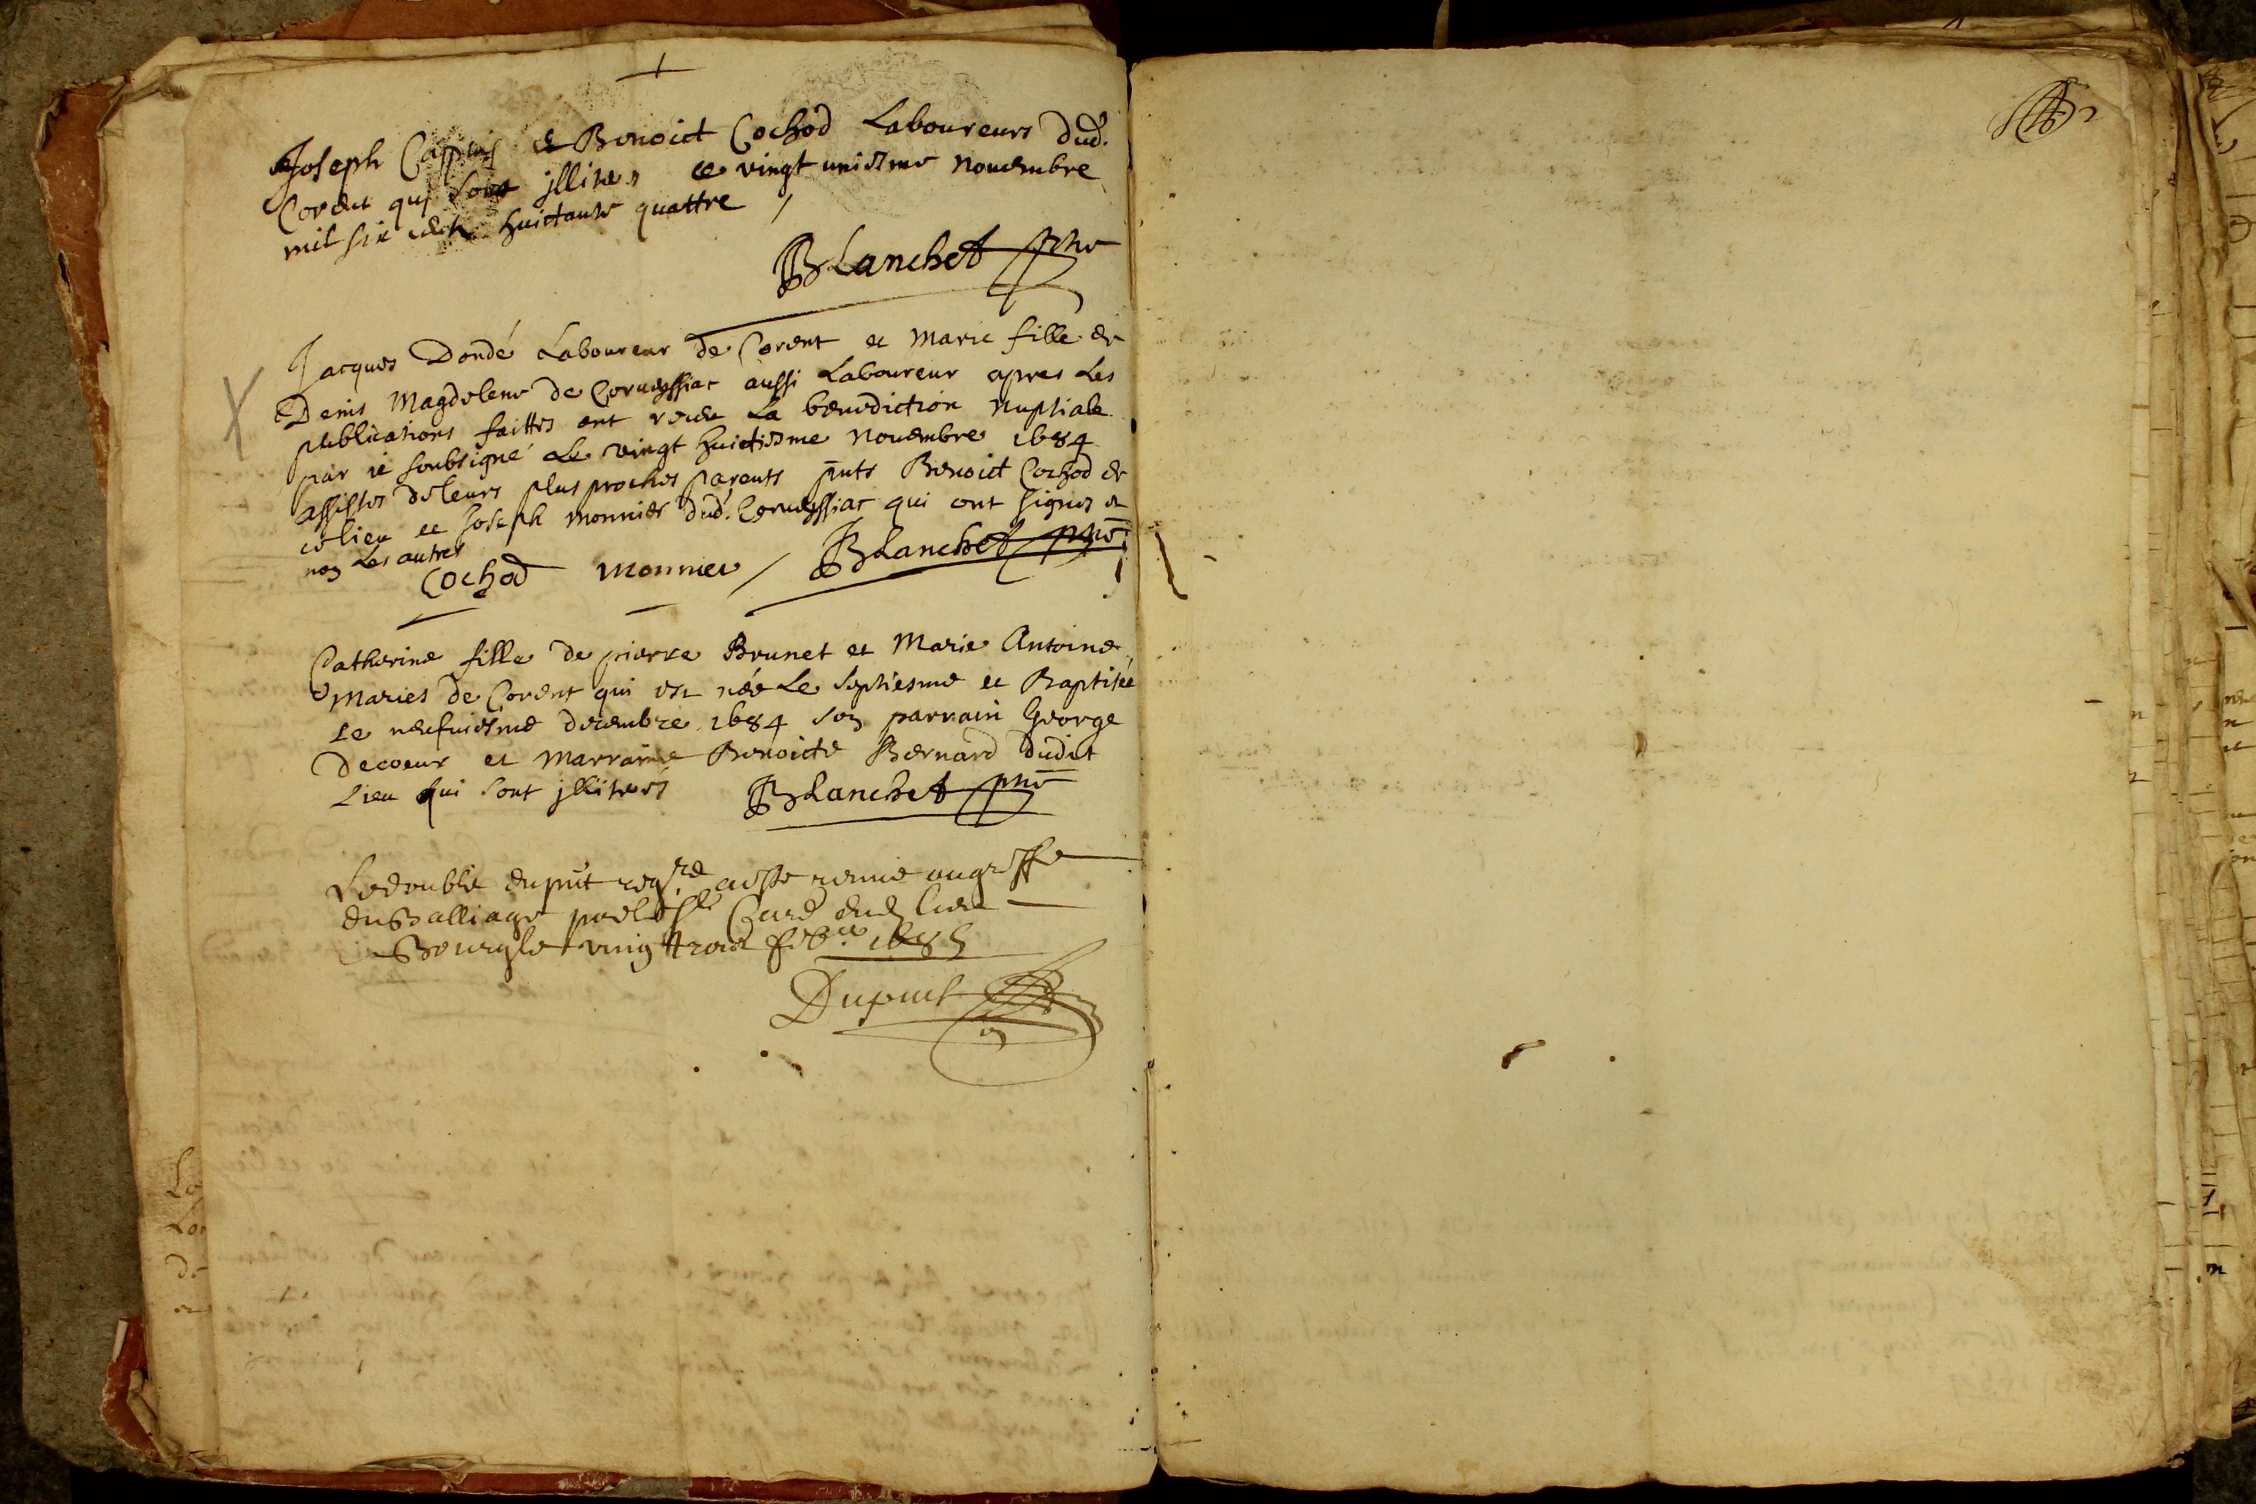 Joseph et Benoict Cochod Laboureurs dud.
Corent qui sont jllitez ce vingt uniesme novembre
mil six cent huictante quattre
Blanchet pbre
Jacques Dondé Laboureur de Corent et Marie fille de
Denis Magdelene de Corveyssiac aussi Laboureur apres Les
publications faittes ont receu La benediction nuptiale
par ie soubsigné Le vingt huictiesme novembre 1684
assistes de leurs plus proches parents pnts Benoict Cochod de
ce lieu et Joseph monnier dud. Corveyssiac qui ont signes et
non Les autres
Cochod monnier Blanchet pbre
Catherine fille de pierre Brunet et Marie Antoine
Maries de Corent qui est née Le septiesme et Baptisée
Le neufuiesme decembre 1684 son parrain George
Decoeur et Marraine Benoicte Bernard dudit
Lieu qui sont jllitrés Blanchet pbre
Le double du pnt regre a esté remis au greffe
du Balliage par le Sr Curé dud. lieu
Bourg le vingt trois 1685
Dupuit